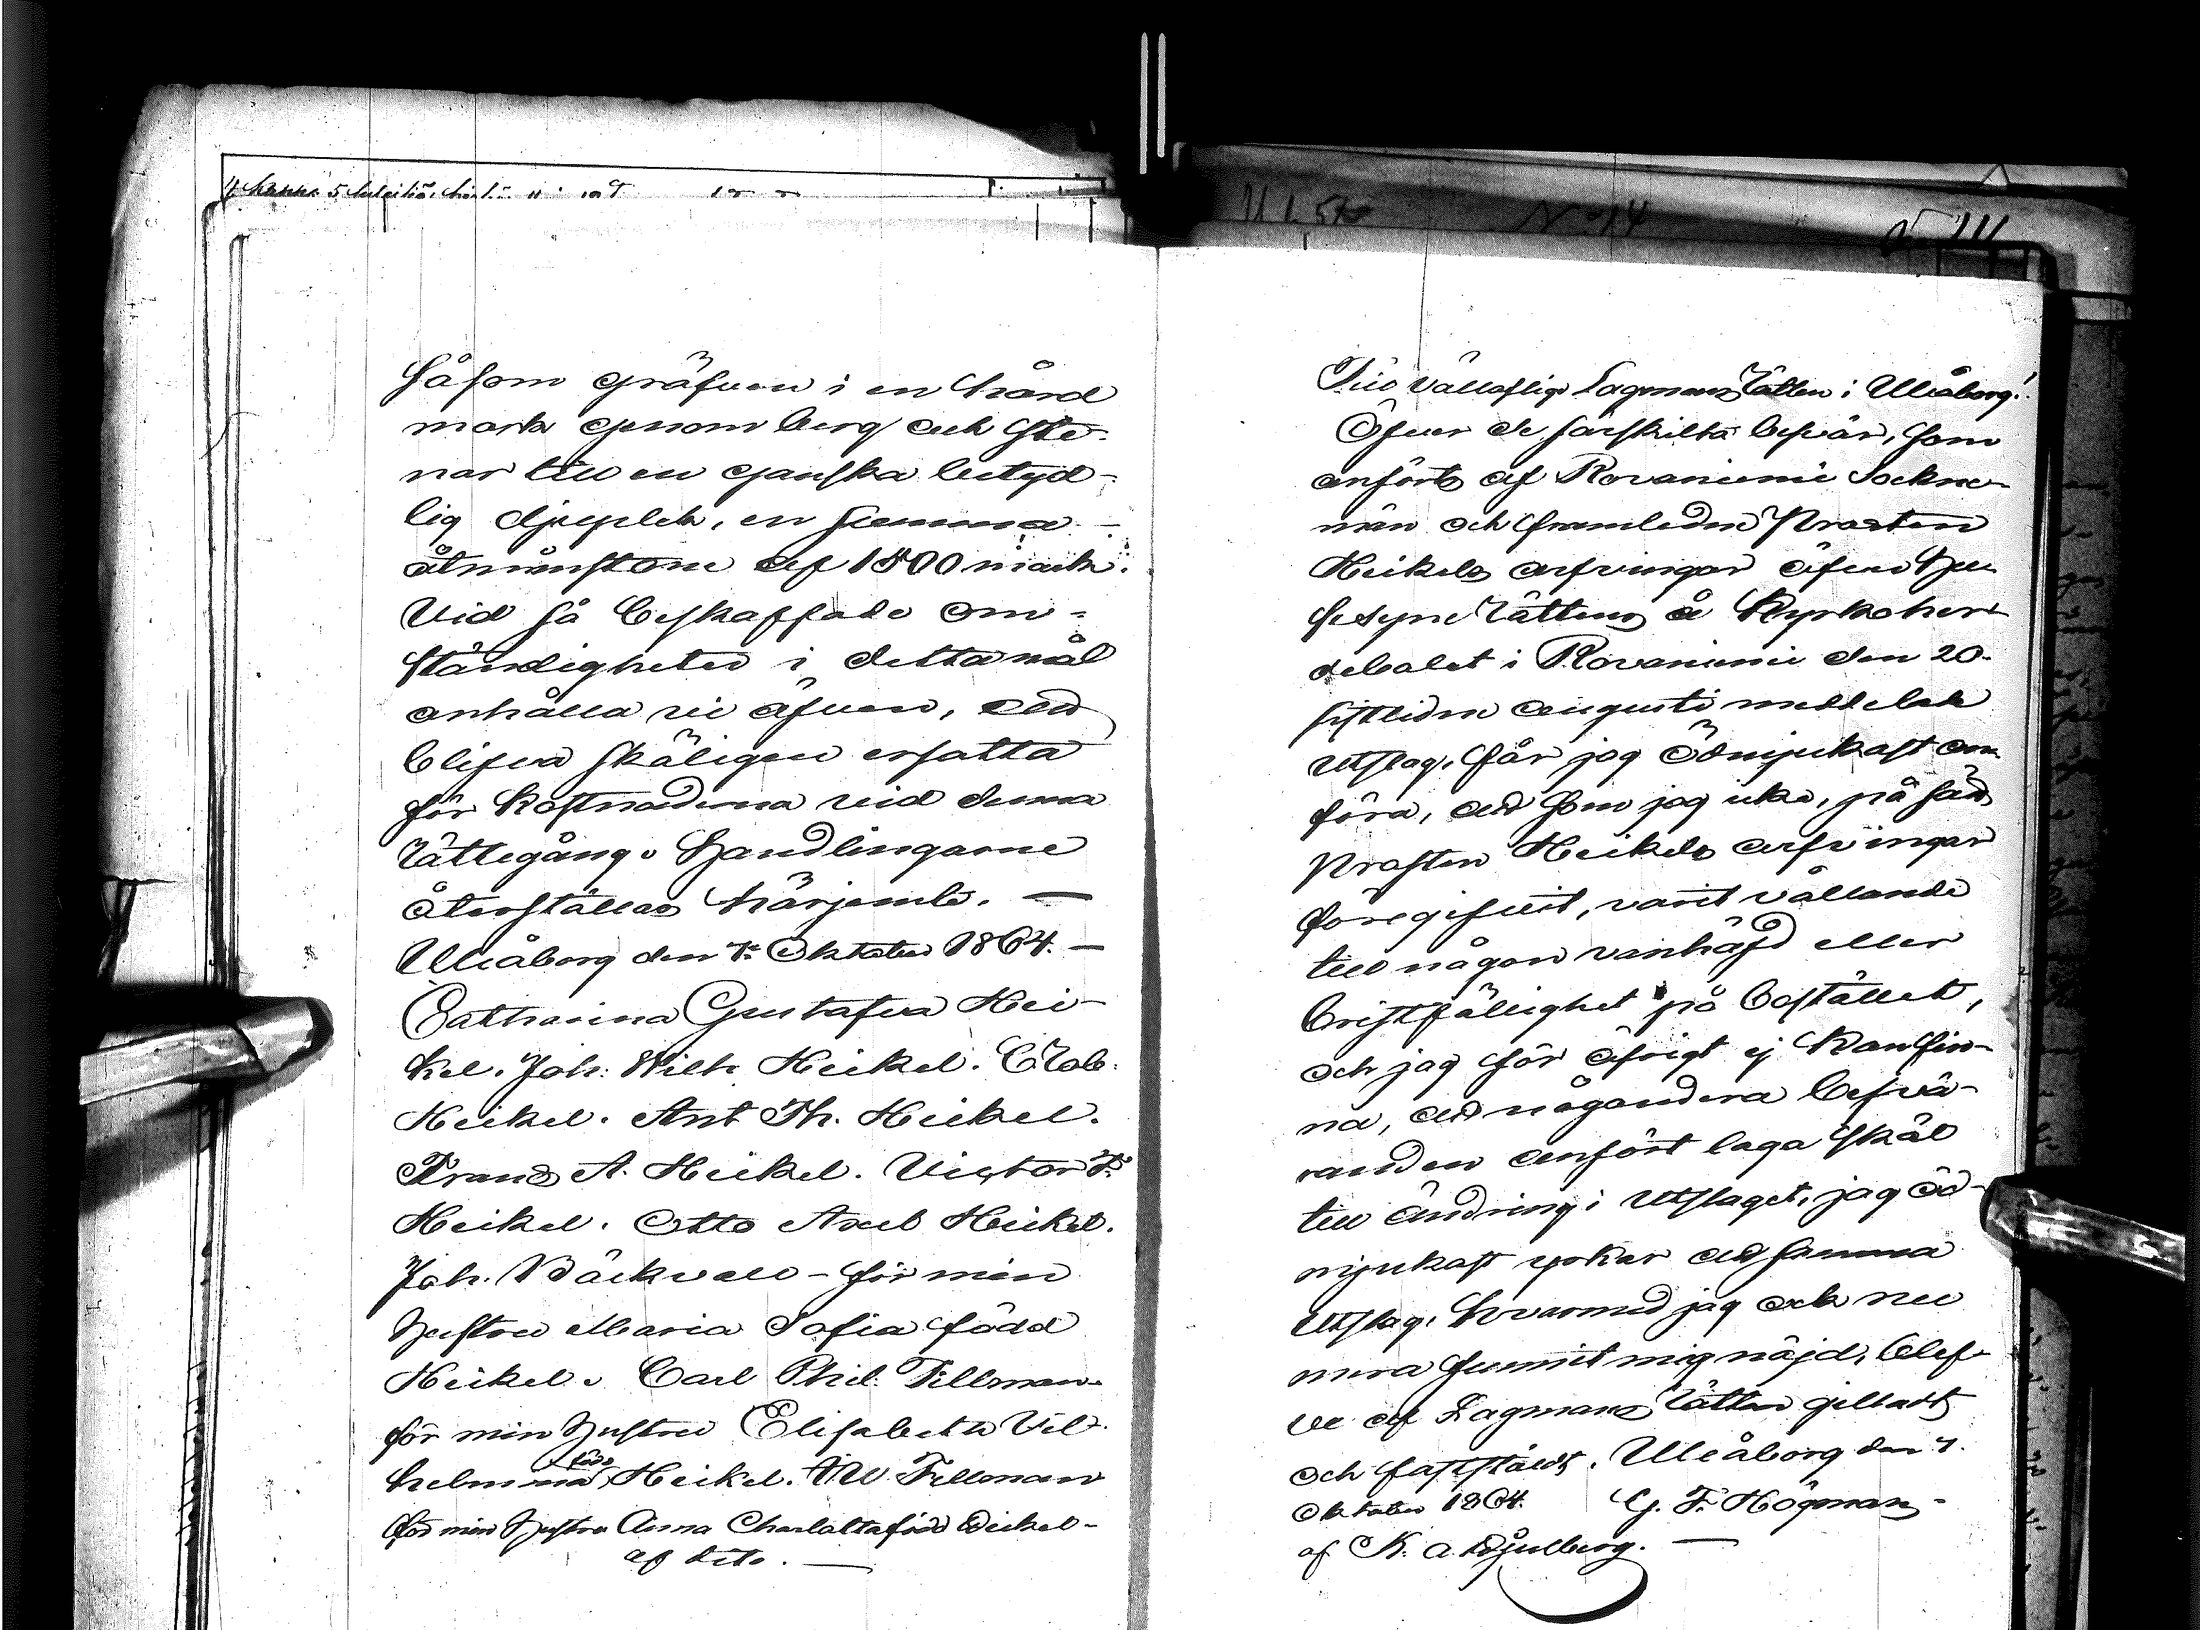 såsom gräfven i en hård
mark genom berg och ste-
nar till en ganska betyd-
lig djuplek, en summa
åtminstone af 1800 mark.
Vid så beskaffade om-
ständigheter i detta mål
anhålla vi äfven, att
blifva skäligen ersatta
för kostnaderna vid denna
Rättegång. Handlingarne
återställas härjemte. —
Uleåborg den 7 Oktober 1864. —
Catharina Gustafva Hei-
kel. Joh: Wilh Heikel. C Rob.
Heikel. Ant Th. Heikel.
Frans A. Heikel. Victor F.
Heikel. Otto Axel Heikel.
Joh. Bäckvall - för min
Hustru Maria Sofia född
Heikel. Carl Phil. Fellman.
för min Hustru Elisabeth Vil-
helmina född Heikel. Fellman
för min Hustru Anna Charlotta född Heikel -
af dito. —
N 14
Till Vällofliga Lagmans Rätten i Uleåborg!
Öfver de särskilta besvär, som
anförts af Rovaniemi Sockne-
män och framledne Prosten
Heikels arfvingar öfver Hu
sesyne Rättens å Kyrkoher-
debolet i Rovaniemi den 20.
sistlidne augusti meddelade
utslag, får jag ödmjukast an
föra, att som jag icke, på sätt
Prosten Heikels arfvingar
föregifvit, varit vållande
till någon vanhäfd eller
bristfällighet på Bostället,
och jag för öfrigt ej kan fin-
na, att någondera besvä-
randen anfört laga skäl
till ändring i utslaget, jag öd-
mjukast yrkar att samma
utslag, hvarmed jag ock nu
mera funnit mig nöjd, blef-
ve af Lagmans Rätten gilladt
och fastställdt. Uleåborg den 7.
Oktober 1864. G. F. Högman -
af K. a